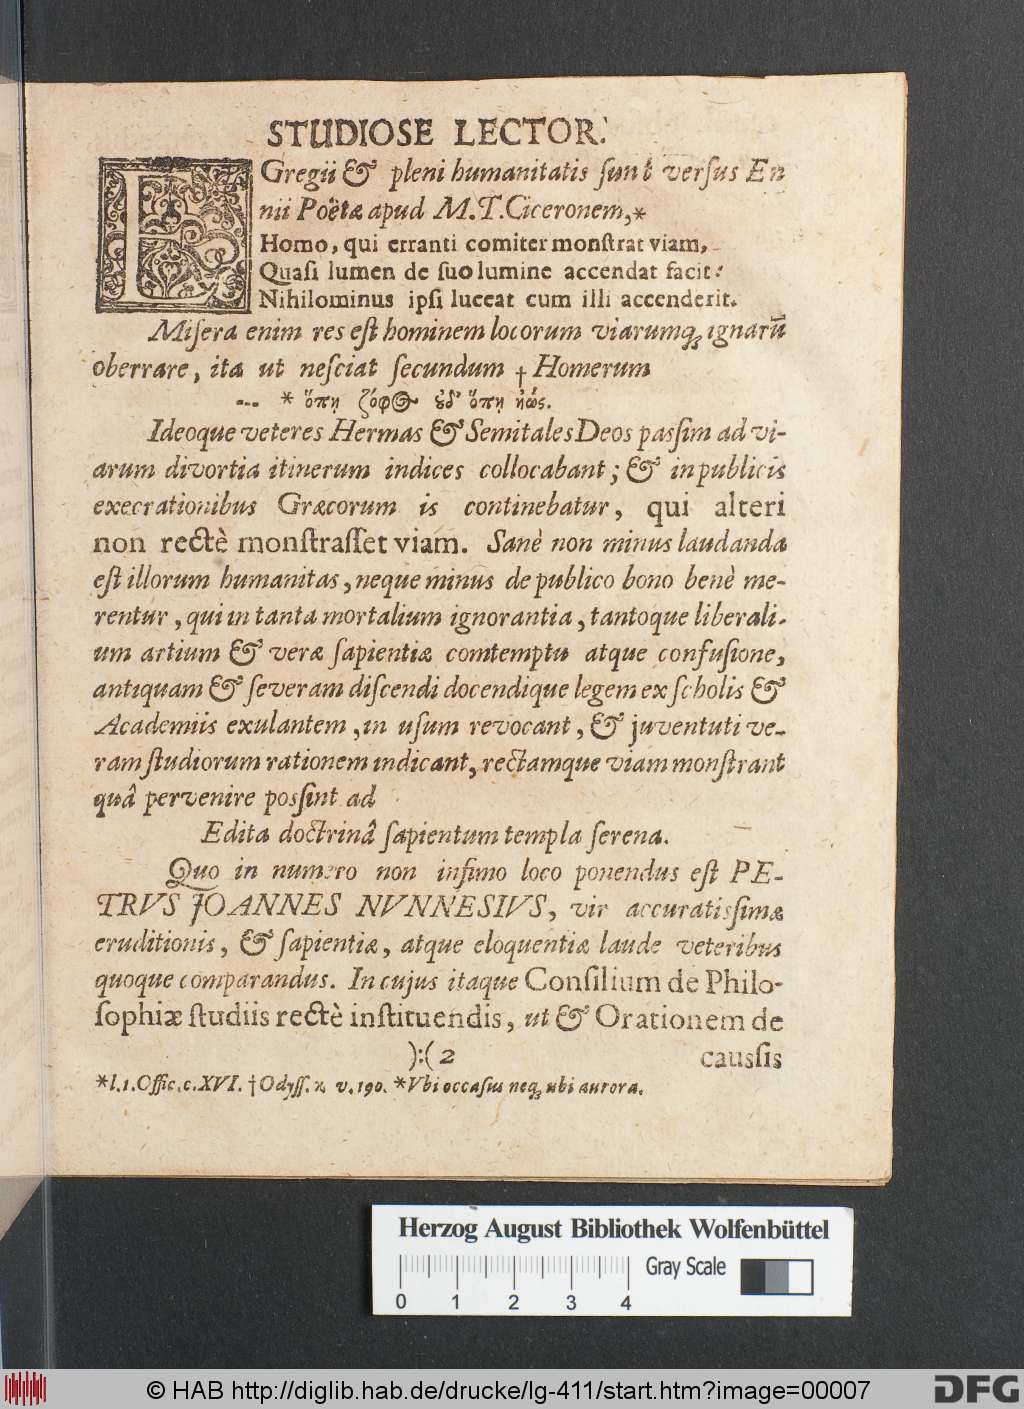 STUDIOSE LECTOR.
EGregii & pleni humanitatis sunt versus En
nii Poëtæ apud M. T. Ciceronem,*
Homo, qui erranti comiter monstrat viam,
Quasi lumen de suo lumine accendat facit:
Nihilominus ipsi luceat cum illi accenderit.
Misera enim res est hominem locorum viarumq; ignarū
oberrare, ita ut nesciat secundum † Homerum
--- * ὅπῃ ζόφος οὐδ' ὅπῃ ἠώς.
Ideoque veteres Hermas & Semitales Deos passim ad vi-
arum divortia itinerum indices collocabant; & in publicis
execrationibus Græcorum is continebatur, qui alteri
non rectè monstrasset viam. Sanè non minus laudanda
est illorum humanitas, neque minus de publico bono benè me-
rentur, qui in tanta mortalium ignorantia, tantoque liberali-
um artium & veræ sapientiæ comtemptu atque confusione,
antiquam & severam discendi docendique legem ex scholis &
Academiis exulantem, in usum revocant, & juventuti ve-
ram studiorum rationem indicant, rectamque viam monstrant
quâ pervenire possint ad
Edita doctrinâ sapientum templa serena.
Quo in numero non infimo loco ponendus est PE-
TRVS JOANNES NVNNESIVS, vir accuratissimæ
eruditionis, & sapientiæ, atque eloquentiæ laude veteribus
quoque comparandus. In cujus itaque Consilium de Philo-
sophiæ studiis rectè instituendis, ut & Orationem de
):( 2
caussis
*l.1. Offic. c. XVI. † Odyss. κ. v. 190. *Vbi occasus neq; ubi aurora.
Herzog August Bibliothek Wolfenbüttel
Gray Scale
0 1 2 3 4
© HAB http://diglib.hab.de/drucke/lg-411/start.htm?image=00007
DFG